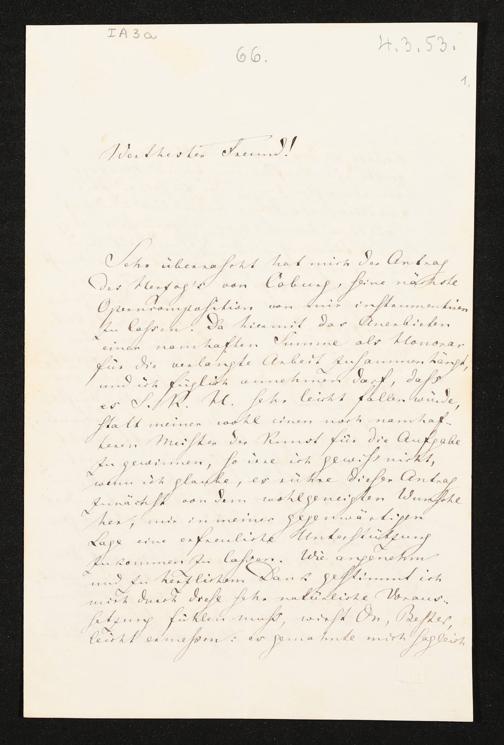 IA3a
66.
4.3.53.
1.
Werthester Freund!
Sehr überrascht hat mich der Antrag
des Herzog's von Coburg, seine nächste
Operncomposition von mir instrumentiren
zu lassen. Da hiermit das Anerbieten
einer namhaften Summe als Honorar
für die verlangte Arbeit zusammenhängt,
und ich füglich annehmen darf, daß
es S. K. H. sehr leicht fallen würde,
statt meiner wohl einen noch namhaf-
teren Meister der Kunst für die Aufgabe
zu gewinnen, so irre ich gewiß nicht,
wenn ich glaube, es rühre dieser Antrag
zunächst von dem wohlgeneigten Wunsche
her, mir in meiner gegenwärtigen
Lage eine erfreuliche Unterstützung
zukommen zu lassen. Wie angenehm
und zu herzlichem Dank gestimmt ich
mich durch diese sehr natürliche Voraus-
setzung fühlen muß, wirst Du, Bester,
leicht ermessen: es gemahnte mich sogleich